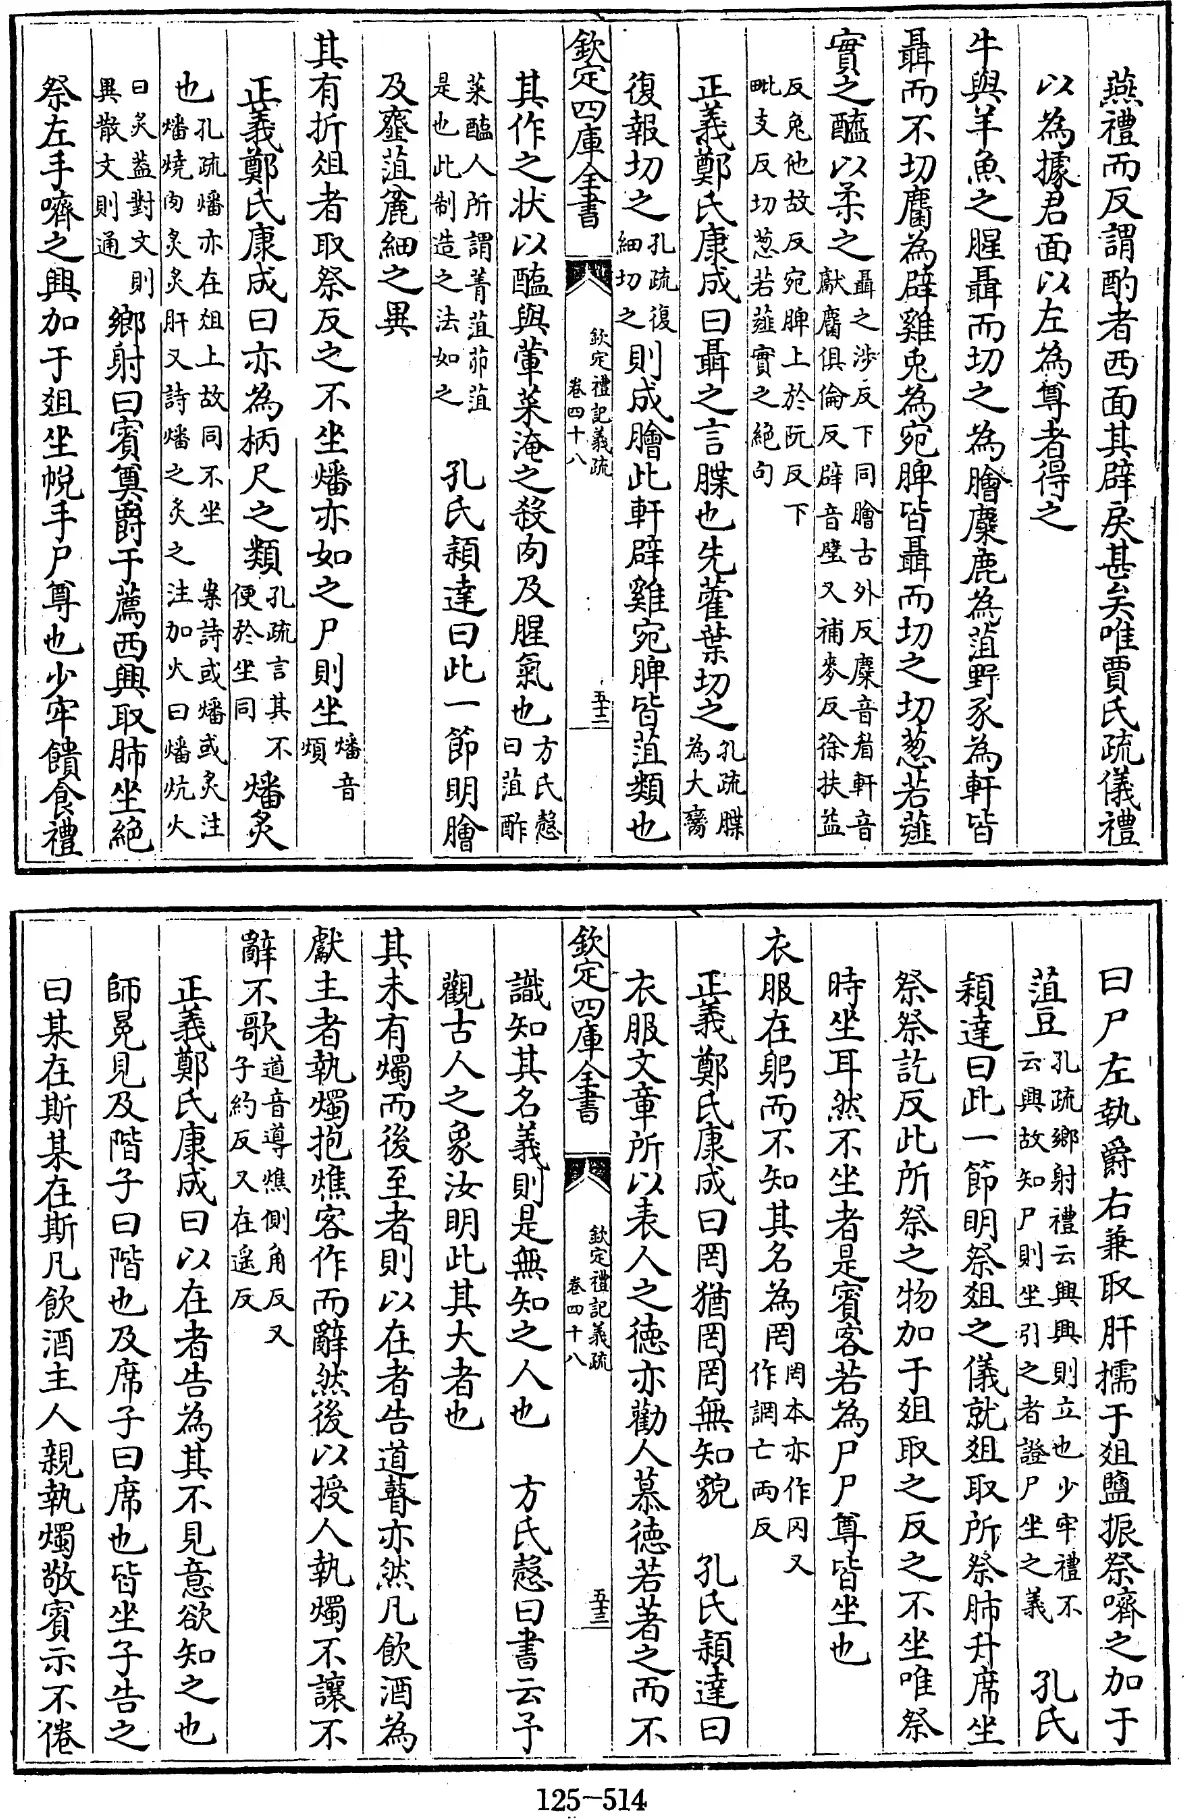 燕禮而反謂酌者西面其辟戾甚矣唯賈氏疏儀禮
以為據君面以左為尊者得之
牛與羊魚之腥聶而切之為膾麋鹿為菹野豕為軒皆
聶而不切麕為辟雞兎為宛脾皆聶而切之切葱若薤
實之醯以柔之聶之涉反下同膾古外反麋音眉軒音獻麕俱倫反辟音璧又補麥反徐扶益
反兎他故反宛脾上於阮反下毗支反切葱若薤實之絶句
正義鄭氏康成曰聶之言牒也先藿葉切之孔疏牒為大臠
復報切之孔疏復細切之則成膾此軒辟雞宛脾皆菹類也
欽定四庫全書
欽定禮記義疏
卷四十八
五十二
其作之状以醯與葷菜淹之殺肉及腥氣也方氏慤曰菹酢
菜醯人所謂菁菹茆菹是也此制造之法如之 孔氏穎達曰此一節明膾
及虀菹麄細之異
其有折俎者取祭反之不坐燔亦如之尸則坐燔音煩
正義鄭氏康成曰亦為柄尺之類孔疏言其不便於坐同 燔炙
也孔疏燔亦在俎上故同不坐 案詩或燔或炙注燔燒肉炙炙肝又詩燔之炙之注加火曰燔炕火
曰炙葢對文則異散文則通 鄉射曰賓奠爵于薦西興取肺坐絶
祭左手嚌之興加于俎坐帨手尸尊也少牢饋食禮
曰尸左執爵右兼取肝擩于俎鹽振祭嚌之加于
菹豆孔疏鄉射禮云興興則立也少牢禮不云興故知尸則坐引之者證尸坐之義 孔氏
穎達曰此一節明祭俎之儀就俎取所祭肺升席坐
祭祭訖反此所祭之物加于俎取之反之不坐唯祭
時坐耳然不坐者是賓客若為尸尸尊皆坐也
衣服在躬而不知其名為罔罔本亦作冈又作誷亡兩反
正義鄭氏康成曰罔猶罔罔無知貌 孔氏穎達曰
衣服文章所以表人之徳亦勸人慕徳若著之而不
欽定四庫全書
欽定禮記義疏
卷四十八
五十三
識知其名義則是無知之人也 方氏慤曰書云予
觀古人之象汝明此其大者也
其未有燭而後至者則以在者告道瞽亦然凡飲酒為
獻主者執燭抱燋客作而辭然後以授人執燭不讓不
辭不歌道音導燋側角反又子約反又在遙反
正義鄭氏康成曰以在者告為其不見意欲知之也
師冕見及階子曰階也及席子曰席也皆坐子告之
曰某在斯某在斯凡飲酒主人親執燭敬賓示不倦
125-514